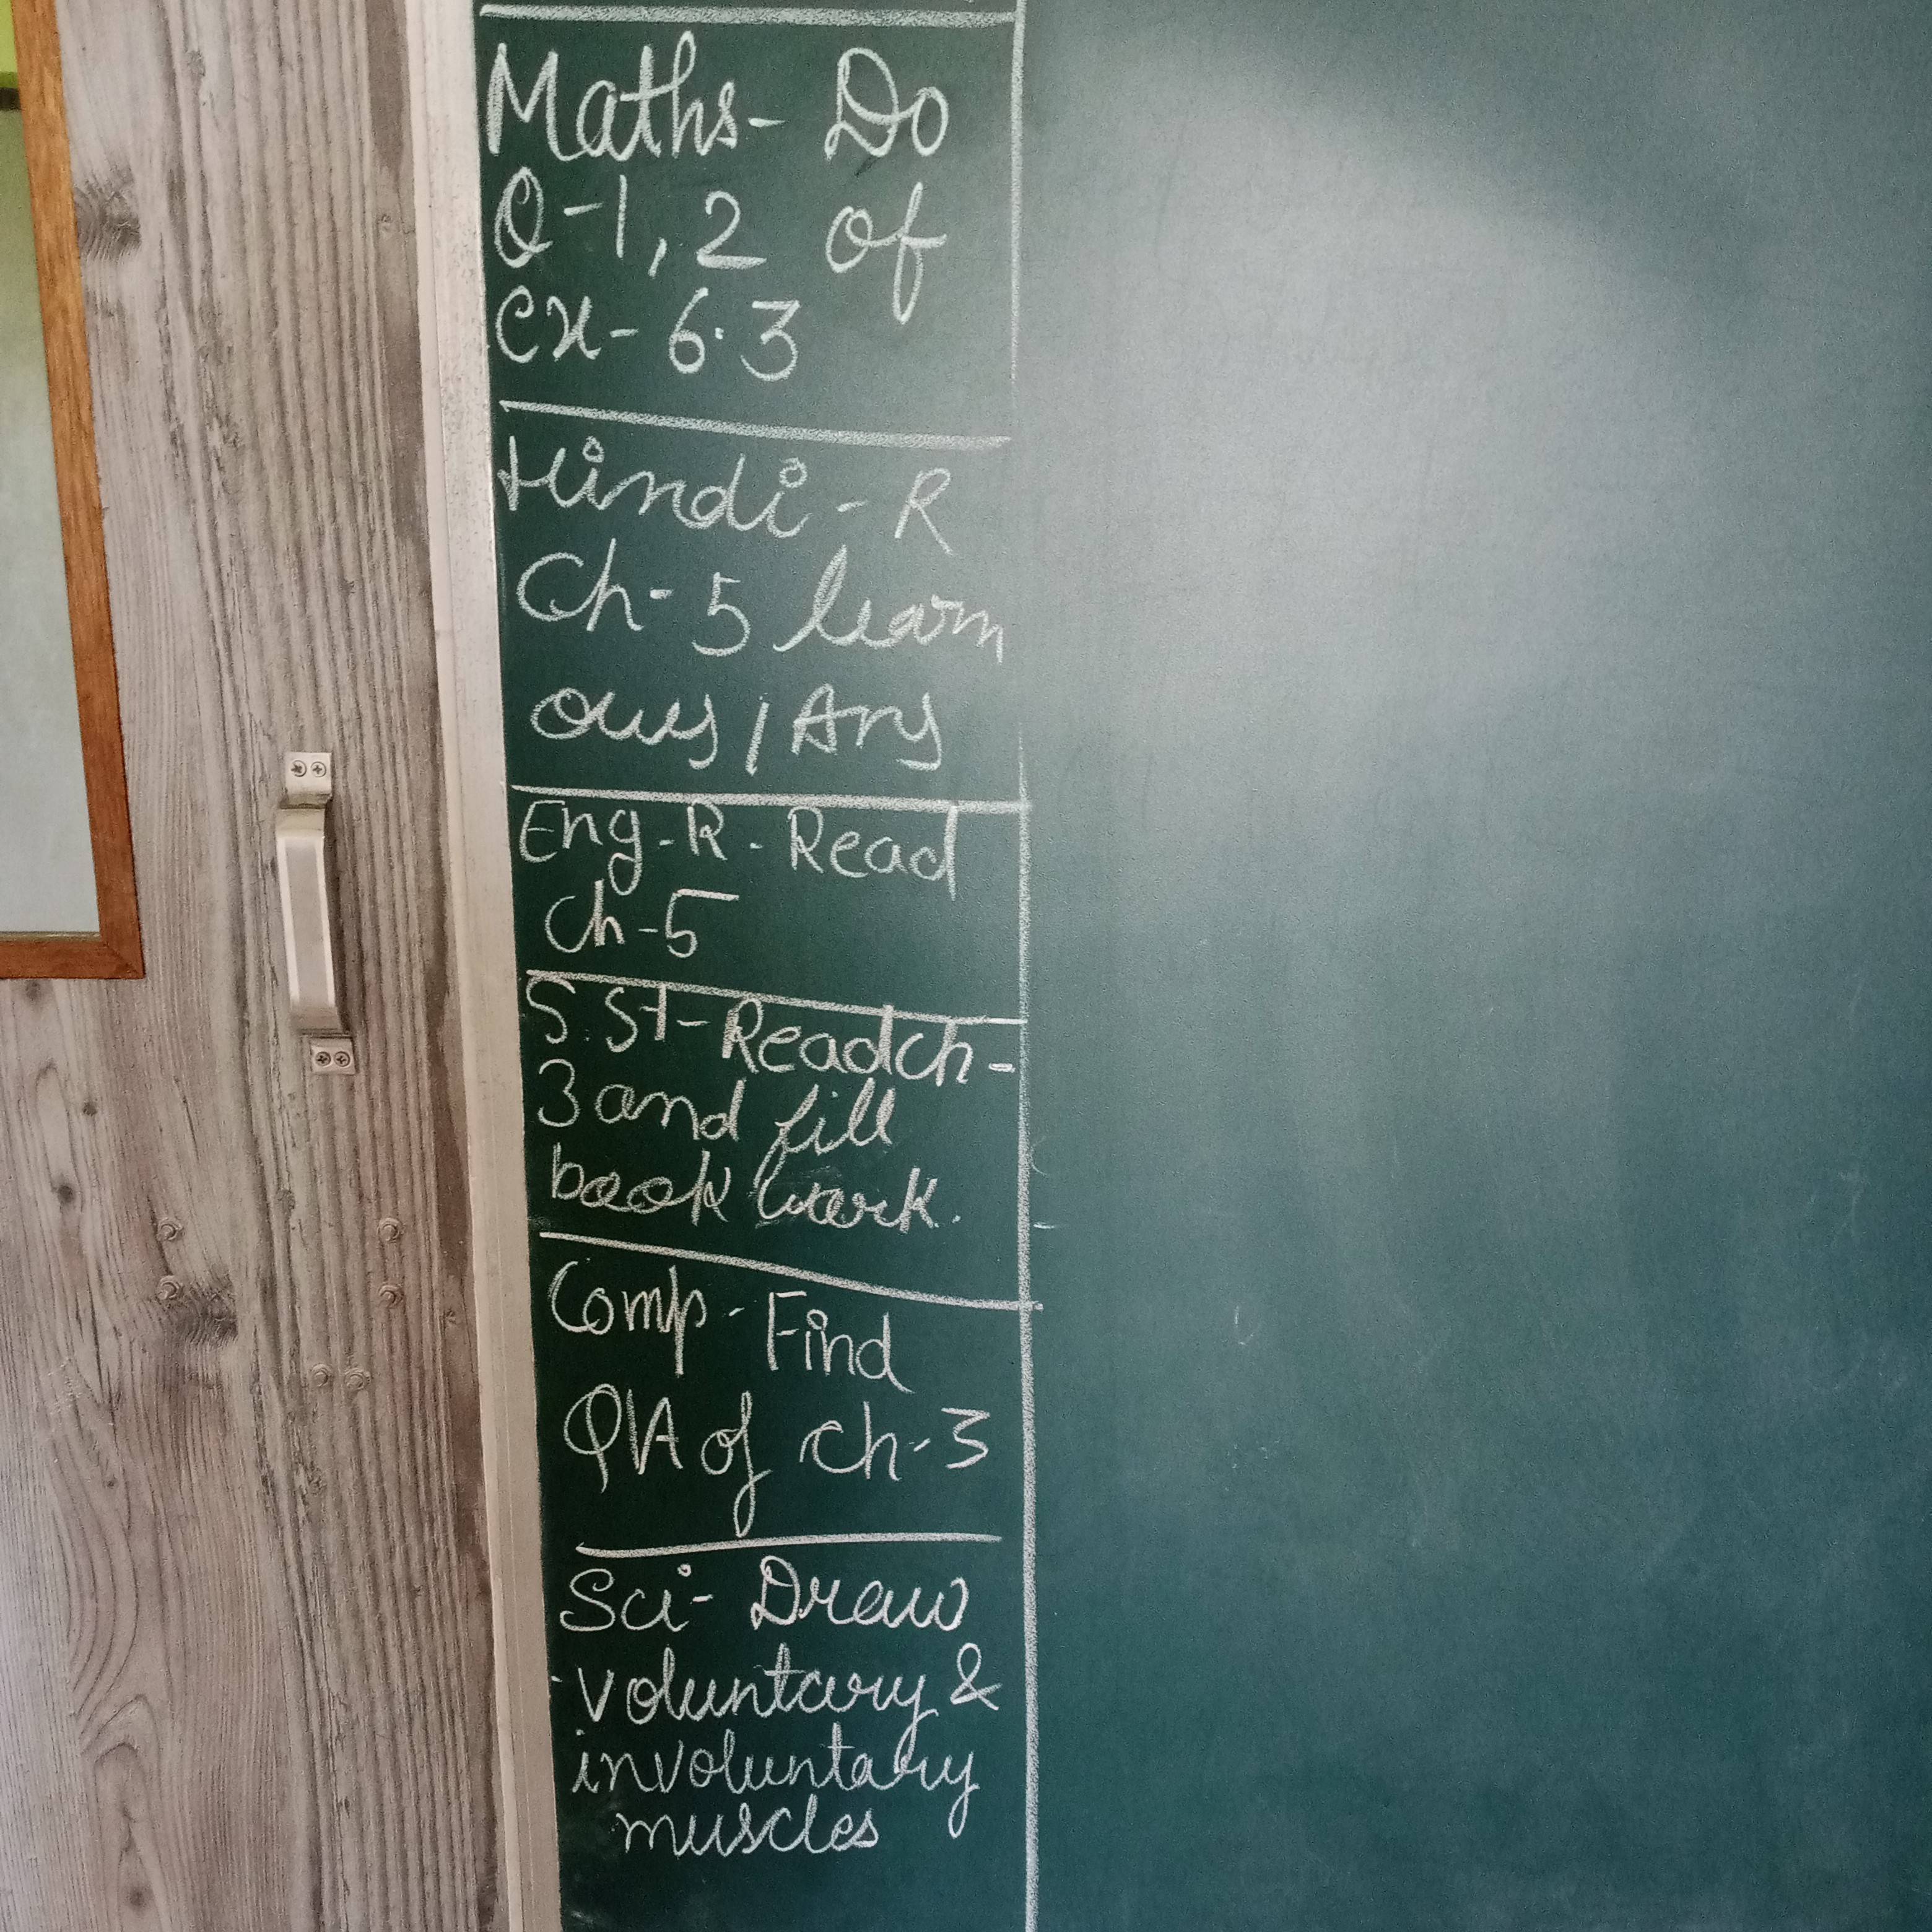 Maths - Do
Q-1, 2 of
Ex- 6.3
Hindi - R
Ch- 5 learn
Ques / Ans
Eng-R- Read
Ch-5
S.St- Read ch-
3 and fill
book work.
Comp - Find
Q/A of ch-3
Sci- Draw
voluntary &
involuntary
muscles